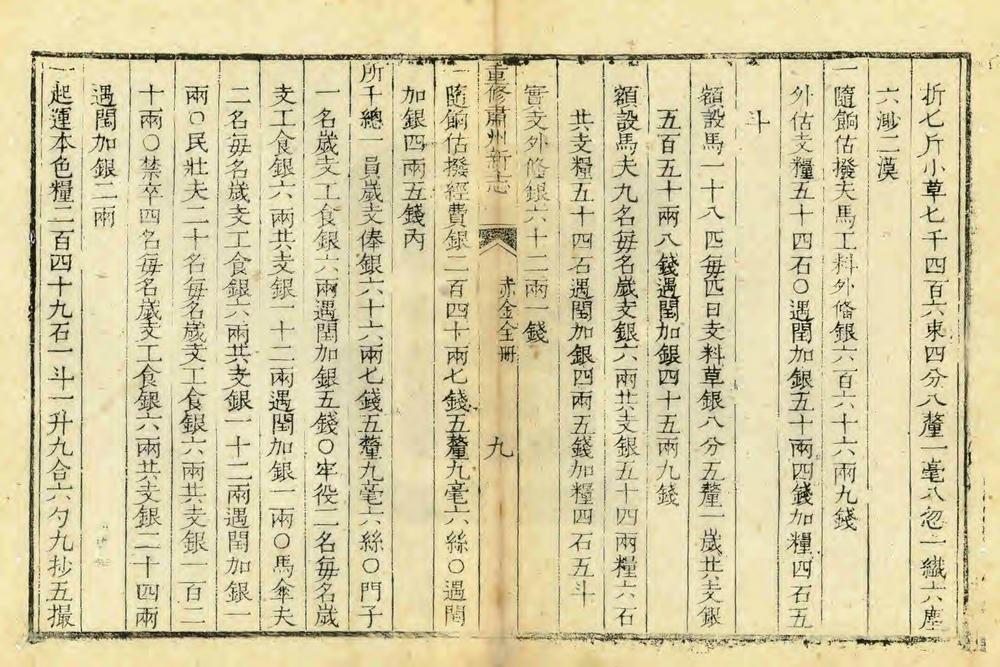 折七斤小草七千四百六束四分八釐一毫八忽一纎六塵
六渺二漠
一隨餉估撥夫馬工料外俻銀六百六十六兩九錢
外估支糧五十四石〇遇閏加銀五十兩四錢加糧四石五
斗
額設馬一十八匹每匹日支料草銀八分五釐一歲共支銀
五百五十兩八錢遇閏加銀四十五兩九錢
額設馬夫九名每名歲支銀六兩共支銀五十四兩糧六石
共支糧五十四石遇閏加銀四兩五錢加糧四石五斗
實支外俻銀六十二兩一錢
重修肅州新志
赤金全冊
九
一隨餉估撥經費銀二百四十兩七錢五釐九毫六絲〇遇閏
加銀四兩五錢內
所千總一員歲支俸銀六十六兩七錢五釐九毫六絲〇門子
一名歲支工食銀六兩遇閏加銀五錢〇牢役二名每名歲
支工食銀六兩共支銀一十二兩遇閏加銀一兩〇馬傘夫
二名每名歲支工食銀六兩共支銀一十二兩遇閏加銀一
兩〇民壯夫二十名每名歲支工食銀六兩共支銀一百二
十兩〇禁卒四名每名歲支工食銀六兩共支銀二十四兩
遇閏加銀二兩
一起運本色糧二百四十九石一斗一升九合六勺九抄五撮